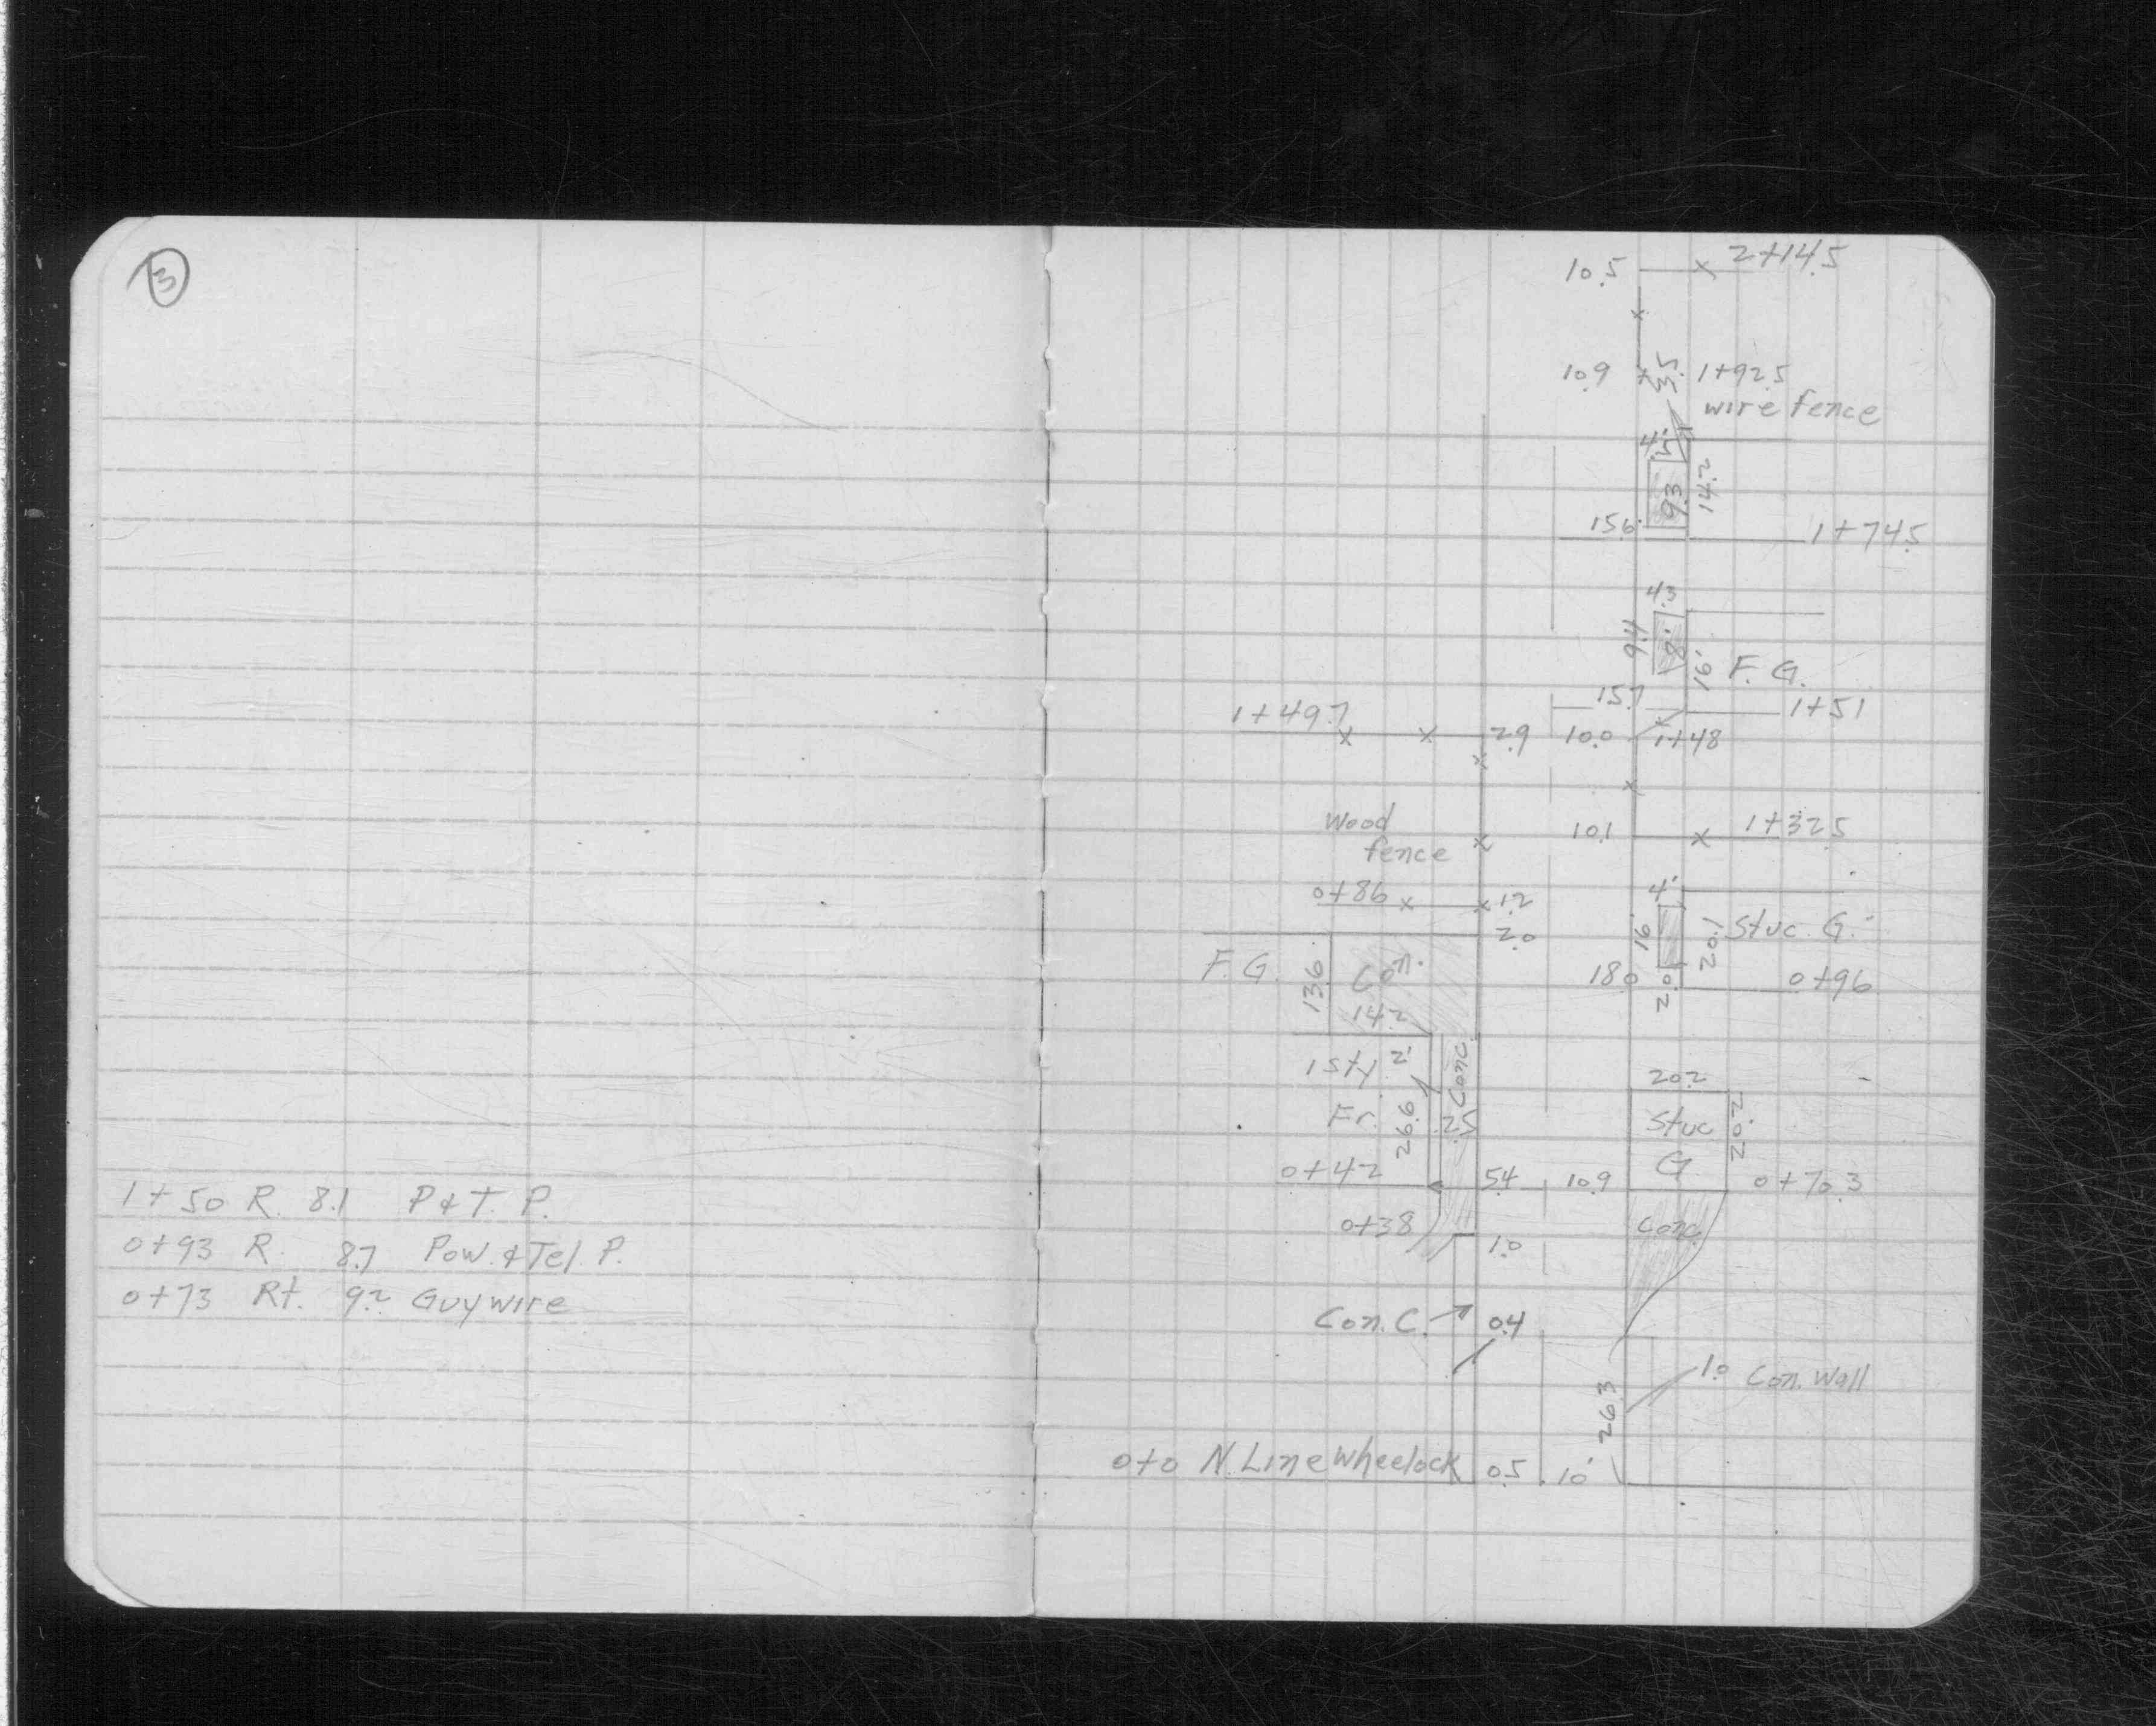 3
1+50 R. 8.1 P & T. P.
0+93 R. 8.7 Pow. & Tel. P.
0+73 Rt. 9.2 Guy wire
10.5 2+14.5
10.9 3.5 1+92.5
wire fence
4.'
9.3 14.2
15.6 1+74.5
4.3
9.4 8.' 16.' F. G.
15.7 1+51
1+49.7 2.9 10.0 1+48
Wood
fence
10.1 1+32.5
0+86 1.2
4.'
2.0
16. 20.1 Stuc. G.
F. G. 13.6 Con.
18.0 2.0 0+96
14.2
1 sty 2.' Conc.
20.2
Fr. 26.6 2.5 Stuc 20.2
G.
0+42 5.4 10.9 0+70.3
0+38 1.0 Conc.
Con. C. 0.4
1.0 Con. Wall
26.3
0+0 N. Line Wheelock 0.5 10.'